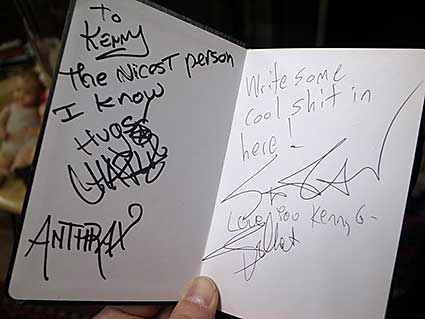 To
KENNY
The Nicest person
I know
Hugs
ANTHRAX
Write some
cool shit in
here!
Love you Kenny G-